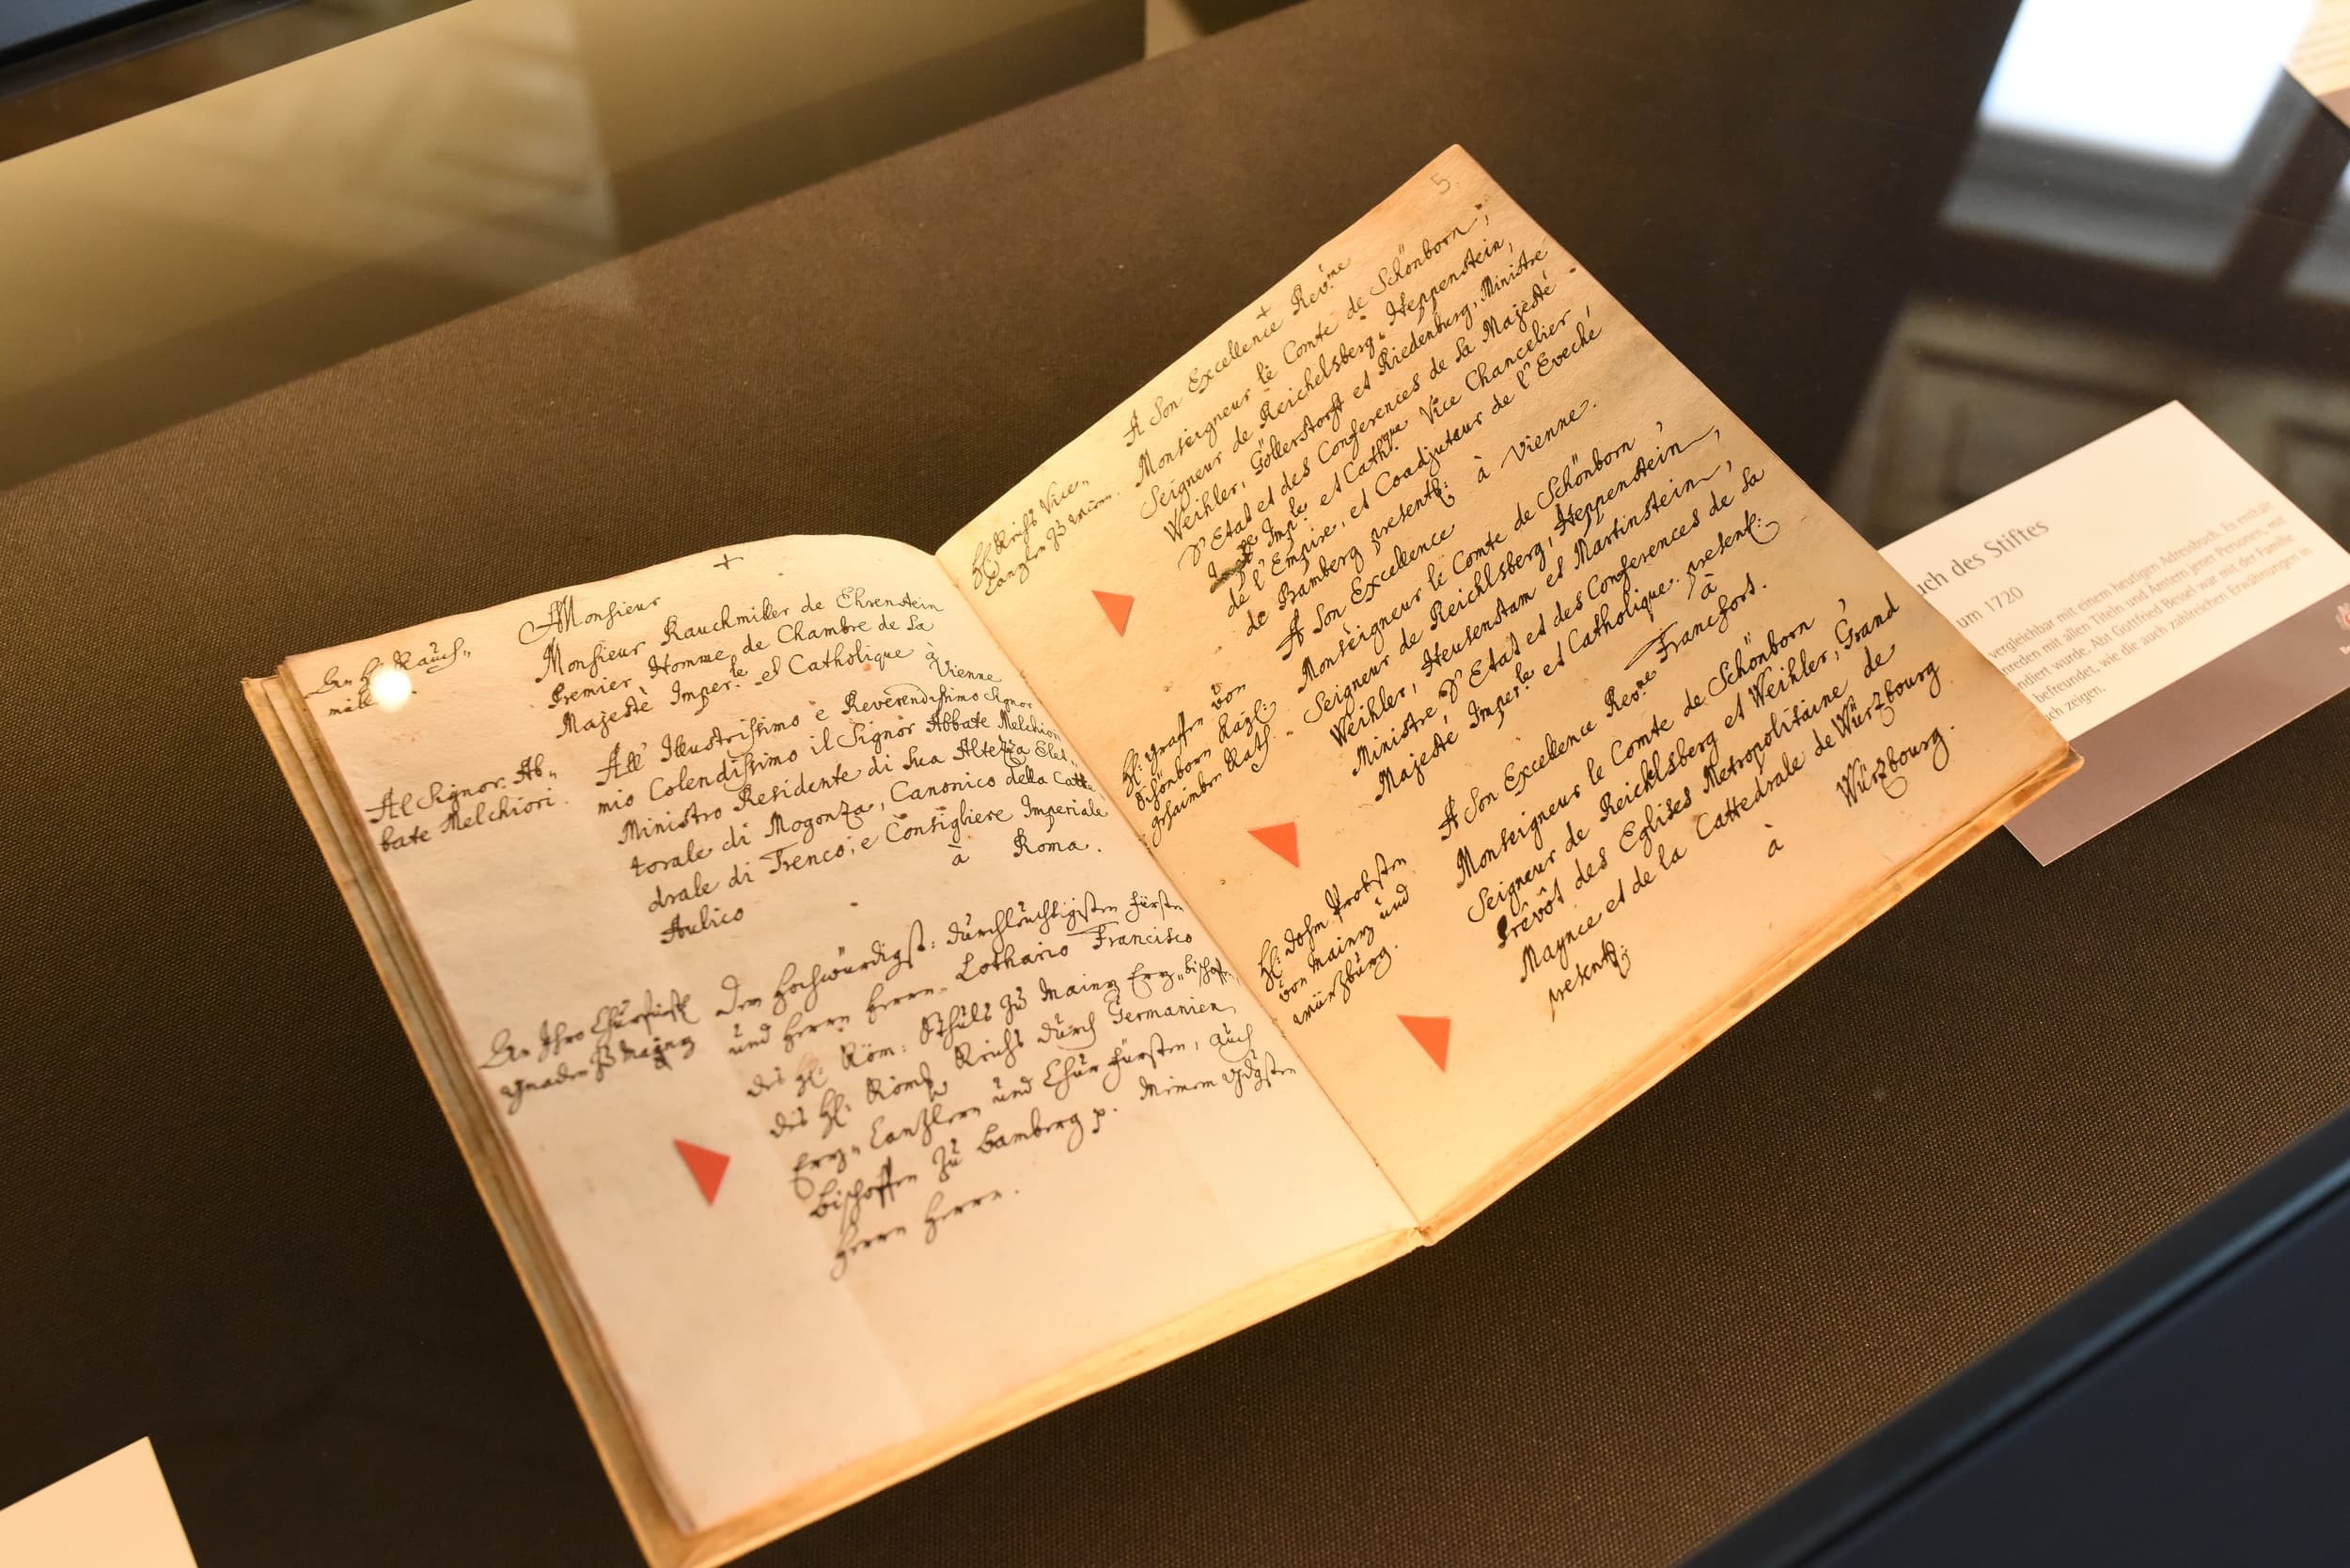 +
Monsieur
Monsieur Rauchmiller de Ehrenstein
Premier Homme de Chambre de La
Majestè Imper.le et Catholique à
Vienne
An H. Rauch-
Al Signor. Ab-
bate Melchiori.
All' Illustrissimo e Reverendissimo Signor
mio Colendissimo il Signor Abbate Melchiori
Ministro Residente di Sua Altezza Elet-
torale di Mogonza, Canonico della Catte
drale di Trenco, e Consigliere Imperiale
Aulico à Roma.
An Ihro Churfürstl
gnaden zu Mainz
Dem Hochwürdigst: durchleuchtigisten Fürsten
und Herrn Herrn. Lothario Francisco
des Hl: Röm: Sthuls zu Mainz Erz-bischoffen,
des Hl: Röm: Reichs durch Germanien
Erz-Canzlern und Chur Fürsten, auch
Bischoffen zu Bamberg p. Meinem gdgsten
Herrn Herrn.
5.
+
Hl: Reichs Vice-
Canzlern zu Wienn.
A Son Excellence Rev.me
Monseigneur le Comte de Schönborn,
Seigneur de Reichelsberg, Heppenstein,
Weihler, Göllerstorff et Riedenburg, Ministre
d'Etat et des Conferences de La Majesté
Imp.le et Cath.que Vice Chancelier
de l'Empire, et Coadjuteur de l'Eveché
de Bamberg presentt: à Vienne.
Hl: Graffen von
Schönborn Kayl:
Ghaimben Rath.
A Son Excellence
Monseigneur le Comte de Schönborn,
Seigneur de Reichlsberg, Heppenstein,
Weihler, Heusenstam et Martinstein,
Ministre d'Etat et des Conferences de La
Majesté Imper.le et Catholique. present:
à
Francfort.
Hl: Dohm Probsten
von Mainz und
Würzburg.
A Son Excellence Rev.me
Monseigneur le Comte de Schönborn,
Seigneur de Reichlsberg et Weihler, Grand
Prevôt des Eglises Metropolitaine de
Maynce et de la Cattedrale de Würzbourg
presentt: à Würzbourg.
uch des Stiftes
um 1720
vergleichbar mit einem heutigen Adressbuch. Es enthält
nreden mit allen Titeln und Ämtern jener Personen, mit
ndiert wurde. Abt Gottfried Bessel war mit der Familie
befreundet, wie die auch zahlreichen Erwähnungen in
ch zeigen.